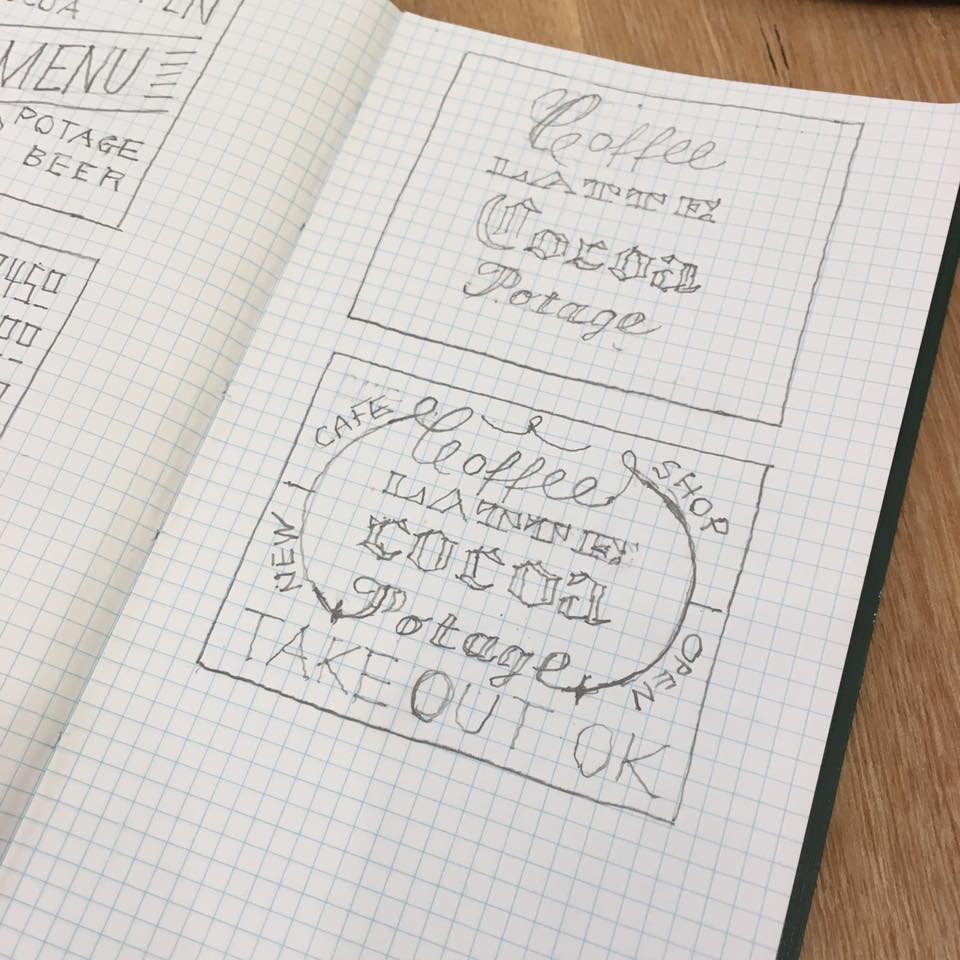 MENU
POTAGE
BEER
Coffee
LATTE
Cocoa
Potage
CAFE
SHOP
Coffee
LATTE
COCOa
Potage
NEW
OPEN
TAKE OUT OK